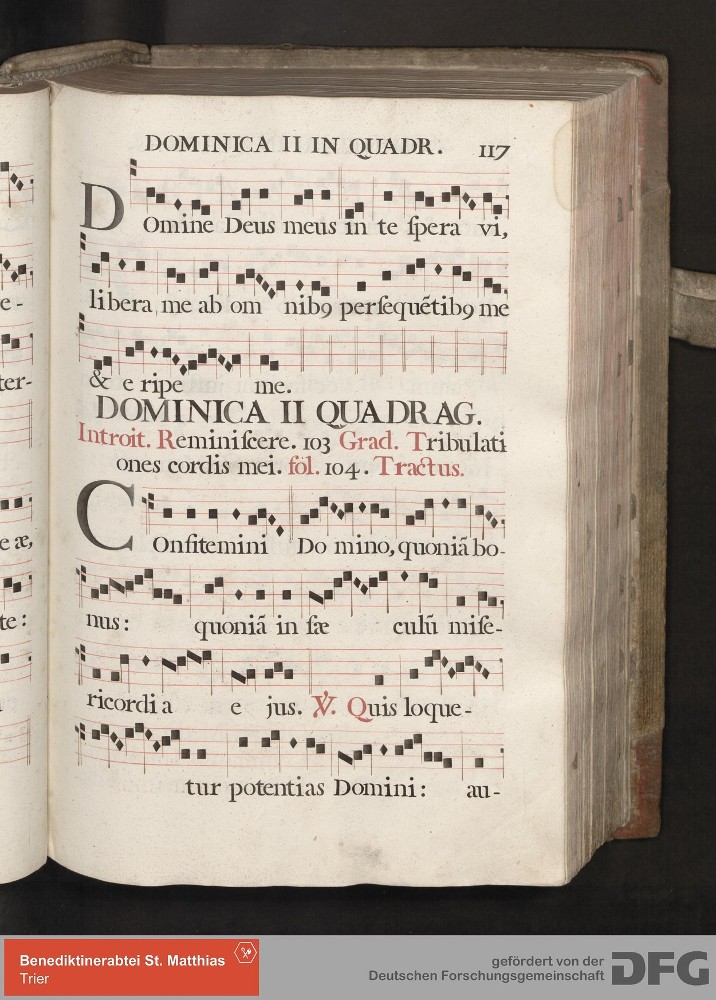 DOMINICA II IN QUADR. 117
Domine Deus meus in te ſpera vi,
e- libera me ab om nibꝯ perſequẽtibꝯ me
ter- & e ripe me.
DOMINICA II QUADRAG.
Introit. Reminiſcere. 103 Grad. Tribulati
ones cordis mei. fol. 104. Tractus.
e æ, COnfitemini Do mino, quoniã bo-
te: nus: quoniã in ſæ culũ miſe-
ricordi a e jus. ℣. Quis loque-
tur potentias Domini: au-
Benediktinerabtei St. Matthias
Trier
gefördert von der
Deutschen Forschungsgemeinschaft DFG